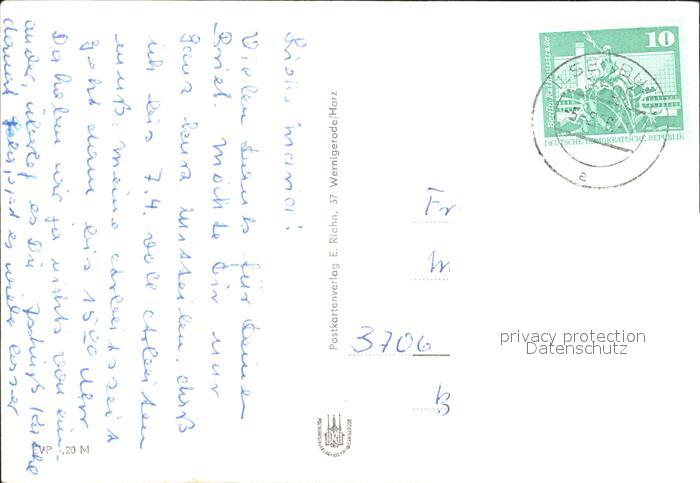 Liebe Maria!
Vielen Dank für Deinen
Brief. Möchte Dir nur
ganz kurz mitteilen, daß
ich bis 7.4. voll arbeiten
muß. Meine Arbeitszeit
geht dann bis 15.00 Uhr
Da haben wir ja nichts von ein-
ander, überleg es Dir
damit es wieder besser
Postkartenverlag E. Riehn, 37 Wernigerode/Harz
EVP -,20 M
10
Berlin Rathausstraße
DEUTSCHE DEMOKRATISCHE REPUBLIK
a
Fr
3706
privacy protection
Datenschutz